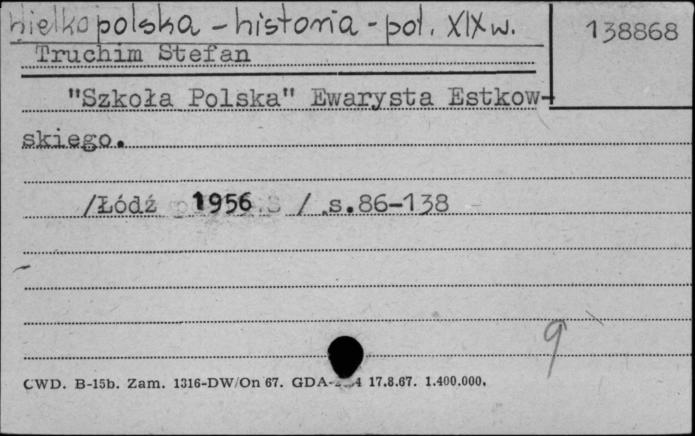 Wielkopolska - historia - poł. XIX w.
138868
Truchim Stefan
"Szkoła Polska" Ewarysta Estkow-
skiego.
/Łódź 1956 / s.86-138
9
CWD. B-15b. Zam. 1316-DW/On 67. GDA- 4 17.8.67. 1.400.000.